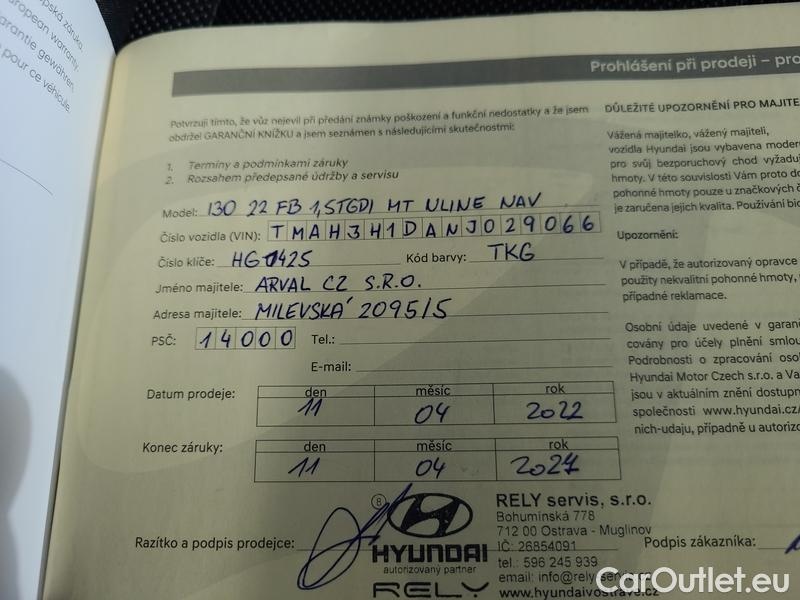 opská záruka.
uropean warranty.
arantie gewähren.
pour ce véhicule.
Prohlášení při prodeji – pro
Potvrzuji tímto, že vůz nejevil při předání známky poškození a funkční nedostatky a že jsem
obdržel GARANČNÍ KNÍŽKU a jsem seznámen s následujícími skutečnostmi:
1. Termíny a podmínkami záruky
2. Rozsahem předepsané údržby a servisu
Model: I30 22 FB 1,5TGDI MT NLINE NAV
Číslo vozidla (VIN): TMAH3H1DANJ029066
Číslo klíče: HG1425 Kód barvy: TKG
Jméno majitele: ARVAL CZ S.R.O.
Adresa majitele: MILEVSKÁ 2095/5
PSČ: 14000 Tel.:
E-mail:
Datum prodeje: den měsíc rok
11 04 2022
Konec záruky: den měsíc rok
11 04 2027
Razítko a podpis prodejce:
8
HYUNDAI
autorizovaný partner
RELY
RELY servis, s.r.o.
Bohumínská 778
712 00 Ostrava - Muglinov
IČ: 26854091
tel.: 596 245 939
email: info@rely-servis.cz
www.hyundaivostrave.cz
Podpis zákazníka:
DŮLEŽITÉ UPOZORNĚNÍ PRO MAJITE
Vážená majitelko, vážený majiteli,
vozidla Hyundai jsou vybavena modern
pro svůj bezporuchový chod vyžadují
hmoty. V této souvislosti Vám proto do
pohonné hmoty pouze u značkových č
je zaručena jejich kvalita. Používání bio
Upozornění:
V případě, že autorizovaný opravce
použity nekvalitní pohonné hmoty,
případné reklamace.
Osobní údaje uvedené v garan
covány pro účely plnění smlou
Podrobnosti o zpracování osob
Hyundai Motor Czech s.r.o. a Va
jsou v aktuálním znění dostupn
společnosti www.hyundai.cz/
nich-udaju, případně u autorizo
CarOutlet.eu